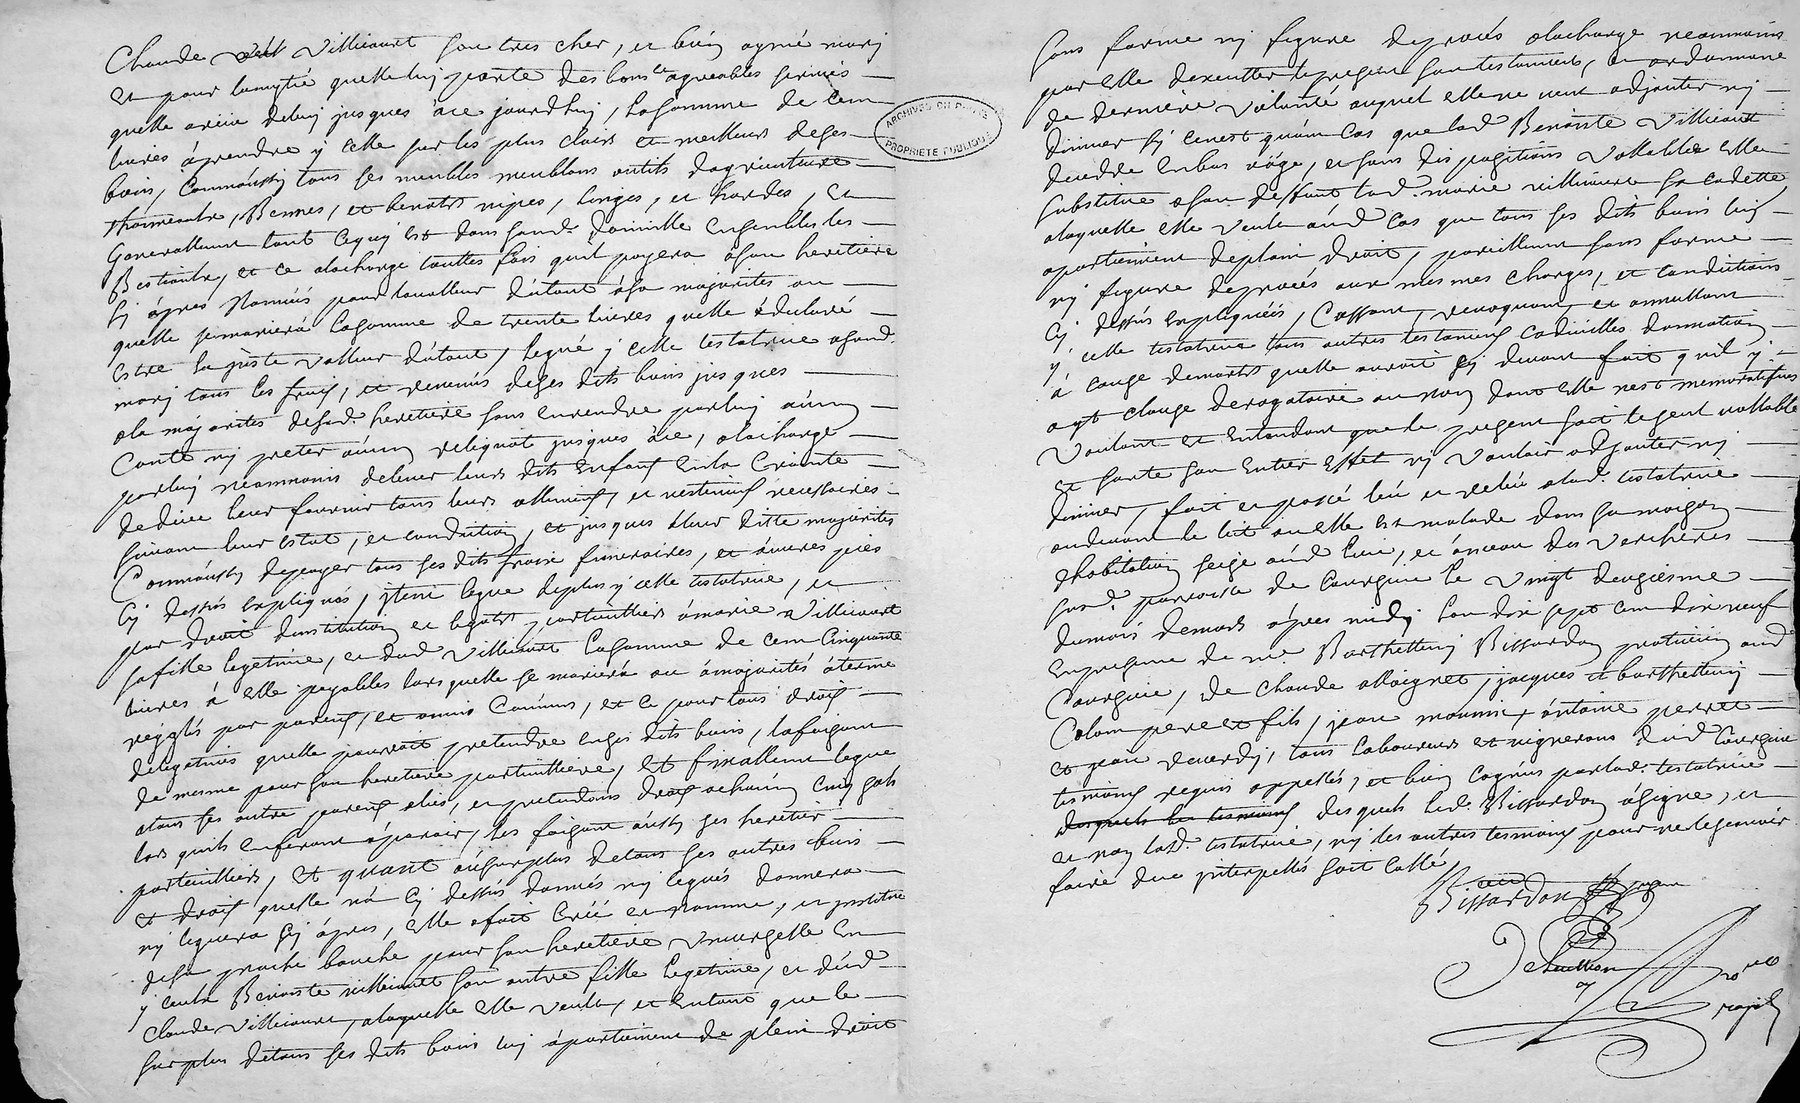 Claude Villicourt son tres cher, et bien aymé mary
et pour lamytié quelle luy porte des bons et agreables services
quelle a reçu deluy jusques à ce jourdhuy, la somme de Cent
livres à prendre y celle sur les plus clairs et meilleurs deses
biens, Commaussy tous ses meubles meublans outils dagriculture
Bennes, et benots nipes, linges, et hardes, et
Generallement tout cequy est dans sond. Domicille ensembles les
Bestiaux, et ce alacharge touttes fois quil payera àson heretiere
cy àpres Nomméé pour la valleur dutout àsa majorités ou
quelle semariera lasomme de trente livres quelle à declaré
estre la juste valleur dutout, legue y celle testatrice asond.
mary tous les fruis, et revenus deses dits biens jusques
ala majorités desad. heretiere sans enrendre parluy aucun
Conte ny preter aucun reliquat jusques àce, alacharge
parluy neammoins delever leurs dits enfans enla Crainte
dedieu leur fournir tous leurs allimens, et vestemens necessaires
suivant leur estat, et condition, et jusques aleur ditte majorités
Commaussy depayer tous ses dits frais funeraires, et àuvres pies
Cy dessus expliqués, jtem legue deplus y celle testatrice, et
par droit dinstitution et legats particulliers àmarie Villicourt
sa fille legetime, et dud Villicourt lasomme de cent Cinquante
livres à elle payables lors quelle se mariera ou àmajorités àterme
regglés par parens, et amis Communs, et ce pour tous drois
delegetimes quelle pourroit pretendre enses dits biens, lafaisant
de mesme pour son heretiere particulliere, et finallement legue
atous ses autre parens alies, et pretendans drois achacun Cinq sols
lors quils enferont àparoir, les faisant aussy ses heretier
particulliers, et quant ausurplus detous ses autres biens
et drois quelle na cy dessus donnés ny legués donnera
ny leguera cy àpres, elle afait Créé et nomme, et jnstitue
desa propre bouche pour son heretiere Universelle En
y celle Benoiste villicourt son autre fille legetime, et dud
Claude Villicourt, alaquelle elle veult, et entant que le
surplus detous ses dits biens luy àpartiennent de plein droit
ARCHIVES DU RHÔNE
PROPRIETE PUBLIQUE
sans forme ny figure deproces alacharge neammoins
par elle dexcutter lepresent son testament, et ordonnance
de derniere volonté auquel elle ne veut adjouter ny
diminuer sy cenest quàu cas que lad Benoiste Villicourt
decede enbas àâge, et sans dispositions vallables elle
substitue àson deffaut lad. marie villicourt sa cadette
alaquelle elle veult aud cas que tous ses dits biens luy
apartiennent deplain droit, pareillement sans forme
ny figure deproces aux mesmes charges, et conditions
cy dessus expliquéés, Cassant, revoquant, et annullant
y celle testatrice tous autres testamens codicilles donnation
à cause demorts quelle auroit cy devant fait quil y
ayt clause derogatoire ou non dont elle nest memoratisve
voulant et entendant que le present soit leseul vallable
et sorte son entier effet ny vouloir adjouter ny
diminuer, fait et passé leu et releu alad. testatrice
audevant le lit ou elle est malade dans sa maison
dhabitation seize aud lieu, et àmeau des Vercheres
susd. parroisse de Courzieu le vingt deuxiesme
dumois demars àpres midy lan dix sept cent dix neuf
enpresence de me. Barthellemy Bissardon praticien aud
Courzieu, de Claude jacques et barthellemy
Colom pere et fils, jean antoine perret
et jean tous laboureurs et vignerons dud Courzieu
tesmoins requis appellés, et bien Cognus parlad. testatrice
desquels led. Bissardon àsigne, et
et non lad. testatrice, ny les autres tesmoins pour nelesçavoir
faire deue jnterpellés soit Callé
Bissardon